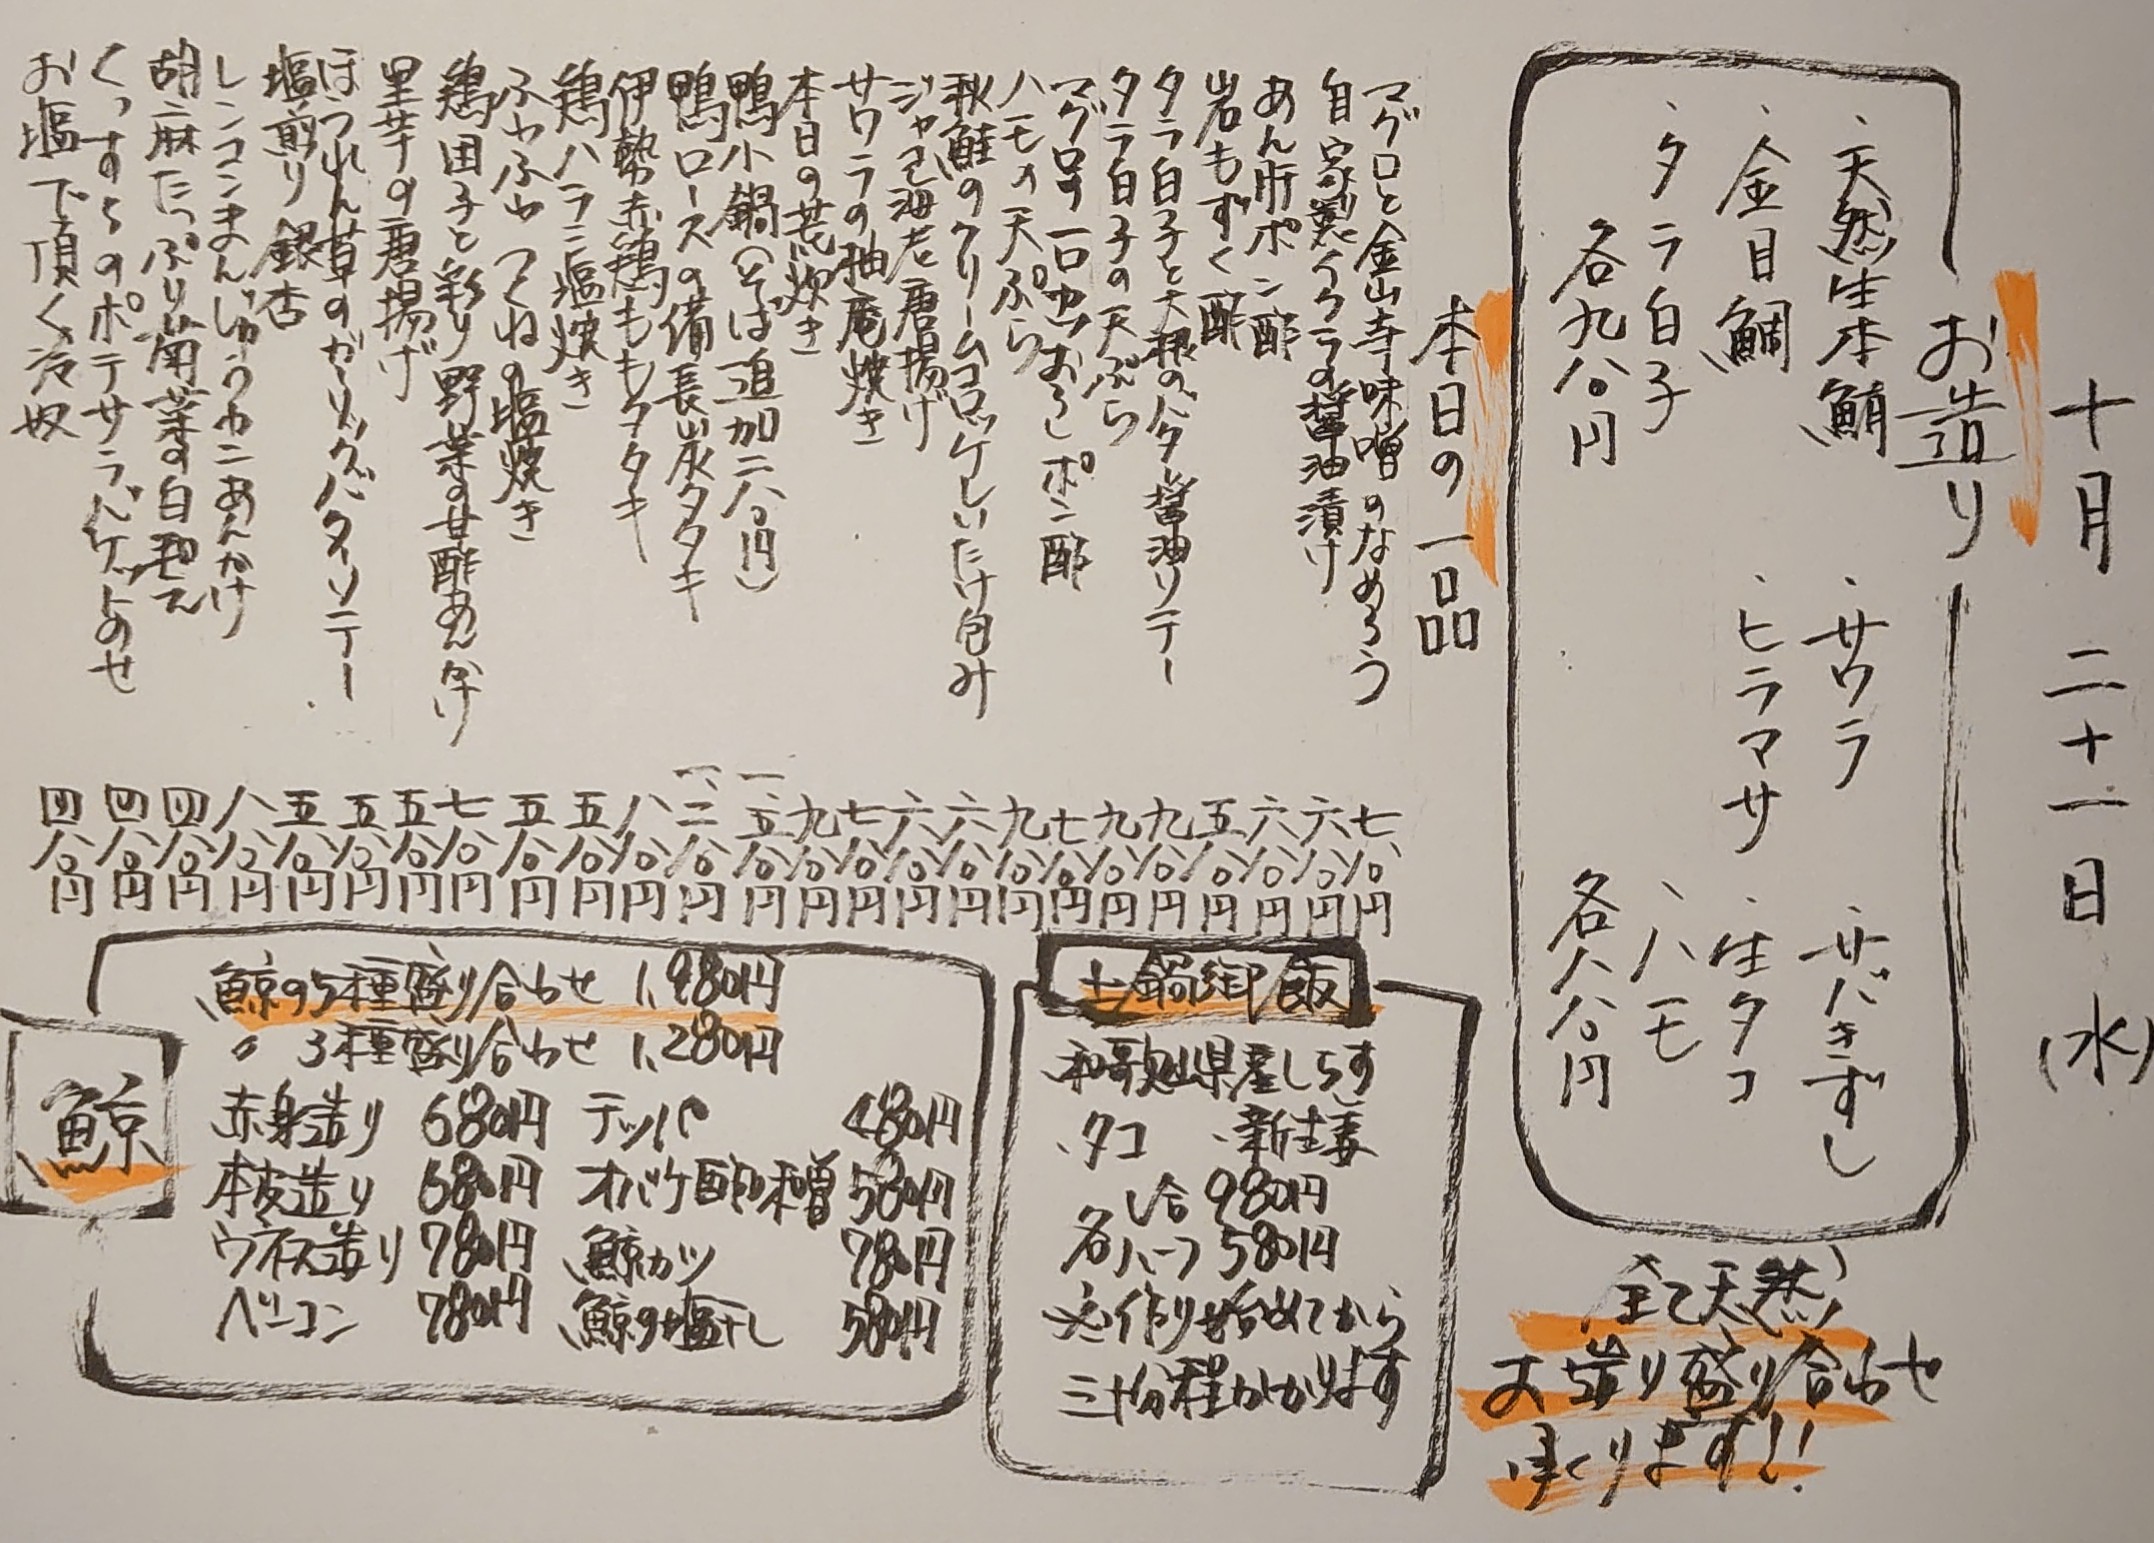 十月二十一日(水)
お造り
・天然生本鮪
・金目鯛
・タラ白子
各九八〇円
・サワラ
・ヒラマサ
・サバきずし
・生タコ
・ハモ
各八八〇円
全て天然
お造り盛り合わせ
承くります!!
本日の一品
マグロと金山寺味噌のなめろう 七八〇円
自家製イクラの醤油漬け 六八〇円
あん肝ポン酢 六八〇円
岩もずく酢 五八〇円
タラ白子と大根のバター醤油ソテー 九八〇円
タラ白子の天ぷら 九八〇円
マグロの一口カツおろしポン酢 七八〇円
ハモの天ぷら 九八〇円
秋鮭のクリームコロッケしいたけ包み 六八〇円
ジャコ海老唐揚げ 六八〇円
サワラの柚庵焼き 七八〇円
本日の荒炊き 九八〇円
鴨小鍋(そば追加二八〇円) 一、五八〇円
鴨ロースの備長炭タタキ 一、二八〇円
伊勢赤鶏ももタタキ 八八〇円
鶏ハラミ塩焼き 五八〇円
ふわふわつくねの塩焼き 五八〇円
鶏団子と彩り野菜の甘酢あんかけ 七八〇円
里芋の唐揚げ 五八〇円
ほうれん草のガーリックバターソテー 五八〇円
塩煎り銀杏 五八〇円
レンコンまんじゅうカニあんかけ 八八〇円
胡麻たっぷり菊菜の白和え 四八〇円
くっすちのポテサラバゲットのせ 四八〇円
お塩で頂く冷奴 四八〇円
土鍋御飯
・和歌山県産しらす
・タコ ・新生姜
一合 980円
各ハーフ 580円
※作り始めてから
三十分程かかります
鯨
鯨の5種盛り合わせ 1,980円
〃 3種盛り合わせ 1,280円
赤身造り 680円 テッパ 480円
本皮造り 680円 オバケ酢味噌 580円
ウネス造り 780円 鯨カツ 780円
ベーコン 780円 鯨の塩干し 580円